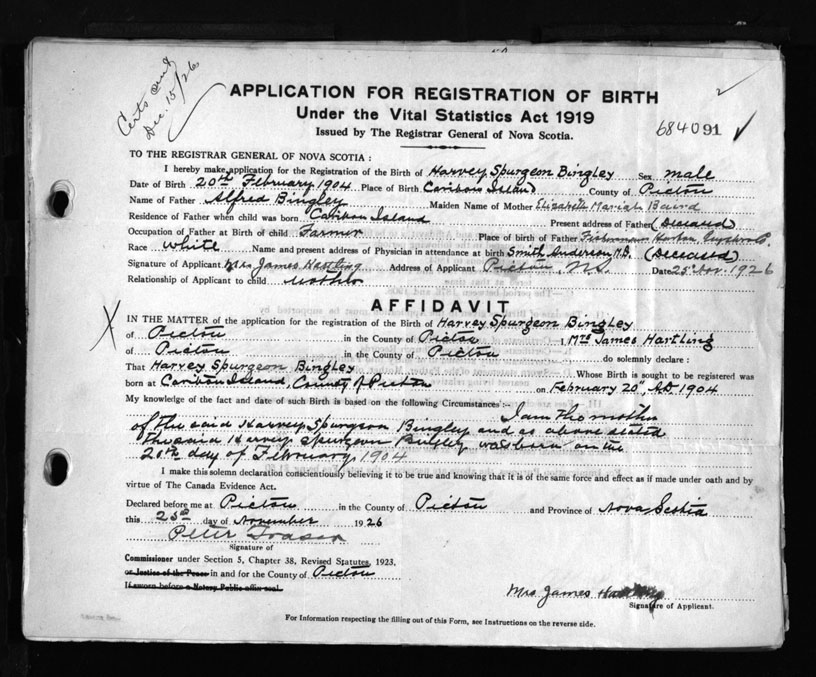 Certs and
Dec. 15/26
APPLICATION FOR REGISTRATION OF BIRTH
Under the Vital Statistics Act 1919
Issued by The Registrar General of Nova Scotia.
684091
TO THE REGISTRAR GENERAL OF NOVA SCOTIA :
I hereby make application for the Registration of the Birth of Harvey Spurgeon Bingley Sex male
Date of Birth 20th February 1904 Place of Birth Caribou Island County of Pictou
Name of Father Alfred Bingley Maiden Name of Mother Elizabeth Mariah Baird
Residence of Father when child was born Caribou Island Present address of Father (Deceased)
Occupation of Father at Birth of child Farmer Place of birth of Father Fisherman Harbor Guysboro Co.
Race white Name and present address of Physician in attendance at birth Smith Anderson M.D. (Deceased)
Signature of Applicant Mrs James Hartling Address of Applicant Pictou, N.S. Date 25th Nov. 1926
Relationship of Applicant to child Mother
AFFIDAVIT
IN THE MATTER of the application for the registration of the Birth of Harvey Spurgeon Bingley
of Pictou in the County of Pictou I, Mrs James Hartling
of Pictou in the County of Pictou do solemnly declare :
That Harvey Spurgeon Bingley Whose Birth is sought to be registered was
born at Caribou Island, County of Pictou on February 20th, AD 1904
My knowledge of the fact and date of such Birth is based on the following Circumstances :- I am the mother
of the said Harvey Spurgeon Bingley and as above stated
the said Harvey Spurgeon Bingley was born on the
20th day of February 1904
I make this solemn declaration conscientiously believing it to be true and knowing that it is of the same force and effect as if made under oath and by
virtue of The Canada Evidence Act.
Declared before me at Pictou in the County of Pictou and Province of Nova Scotia
this 25th day of November 1926
Peter Fraser
Signature of
Commissioner under Section 5, Chapter 38, Revised Statutes, 1923,
or Justice of the Peace in and for the County of Pictou
If sworn before a Notary Public affix seal.
Mrs James Hartling
Signature of Applicant.
For Information respecting the filling out of this Form, see Instructions on the reverse side.